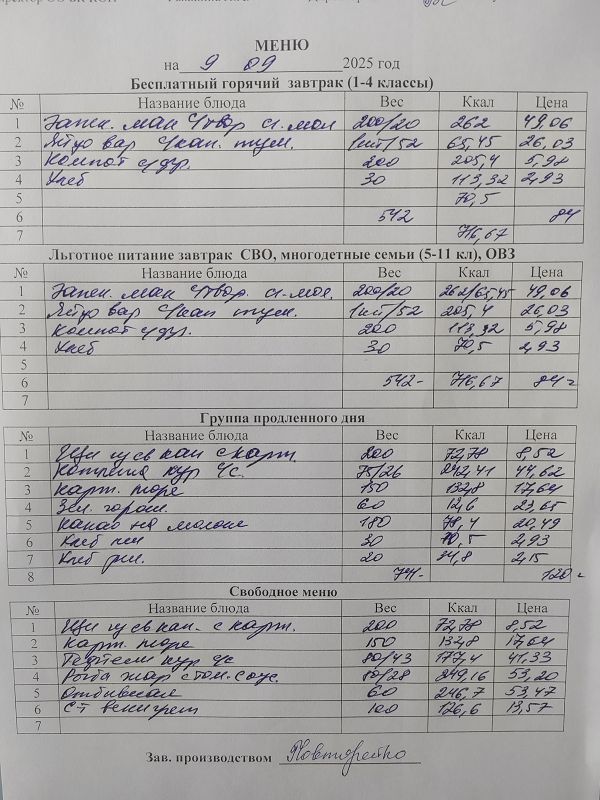 МЕНЮ
на 9 09 2025 год
Бесплатный горячий завтрак (1-4 классы)
№ Название блюда Вес Ккал Цена
1 Запек. ман Ч/твор сг. мол 200/20 262 49,06
2 Яйцо вар Ч/кап. туш. 1шт/52 65,45 26,03
3 Компот с/др. 200 205,4 5,98
4 Хлеб 30 113,32 2,93
5 70,5
6 542 84
7 716,67
Льготное питание завтрак СВО, многодетные семьи (5-11 кл), ОВЗ
№ Название блюда Вес Ккал Цена
1 Запек. ман Ч/твор. сг. мол. 200/20 262/65,45 49,06
2 Яйцо вар Ч/кап туш. 1шт/52 205,4 26,03
3 Компот с/др. 200 113,32 5,98
4 Хлеб 30 70,5 2,93
5
6 542- 716,67 84-
Группа продленного дня
№ Название блюда Вес Ккал Цена
1 Щи из св кап с карт. 200 72,78 8,52
2 Котлета кур 75/26 242,41 44,62
3 Карт. пюре 150 132,8 17,64
4 Зел. горош. 60 12,6 23,65
5 Какао на молоке 180 78,4 20,49
6 Хлеб пш 30 70,5 2,93
7 Хлеб рж. 20 34,8 2,15
8 741- 120-
Свободное меню
№ Название блюда Вес Ккал Цена
1 Щи из св кап. с карт. 200 72,78 8,52
2 Карт. пюре 150 132,8 17,64
3 Тефтели кур 80/43 177,4 41,33
4 Рыба жар стом. соус. 80/28 249,16 53,20
5 Отбивная 60 246,7 53,47
6 С-т винегрет 100 126,6 13,57
7
Зав. производством